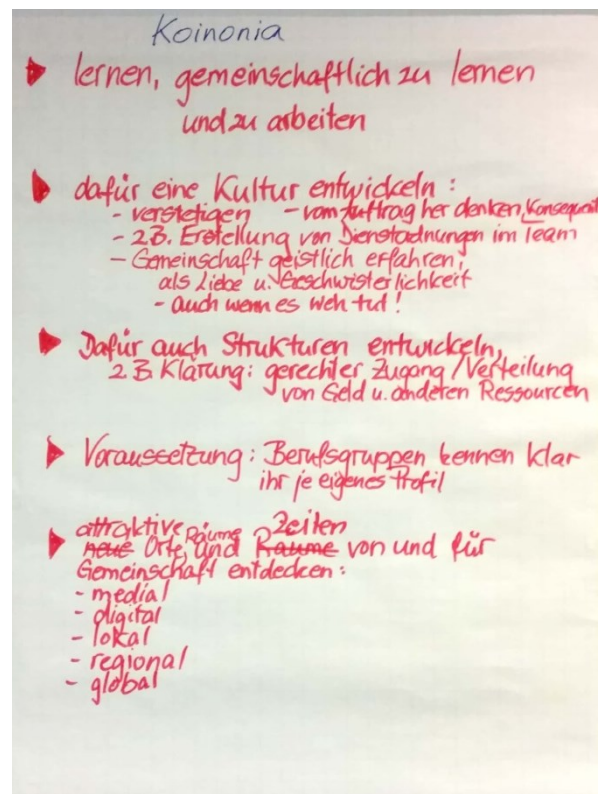 Koinonia
lernen, gemeinschaftlich zu lernen
und zu arbeiten
dafür eine Kultur entwickeln:
- verstetigen - vom Auftrag her denken, Konsequent
- z.B. Erstellung von Dienstordnungen im Team
- Gemeinschaft geistlich erfahren;
als Liebe u. Geschwisterlichkeit
- auch wenn es weh tut!
Dafür auch Strukturen entwickeln,
z.B. Klärung: gerechter Zugang / Verteilung
von Geld u. anderen Ressourcen
Voraussetzung: Berufsgruppen kennen klar
ihr je eigenes Profil
attraktive Räume Zeiten
neue Orte, und Räume von und für
Gemeinschaft entdecken:
- medial
- digital
- lokal
- regional
- global